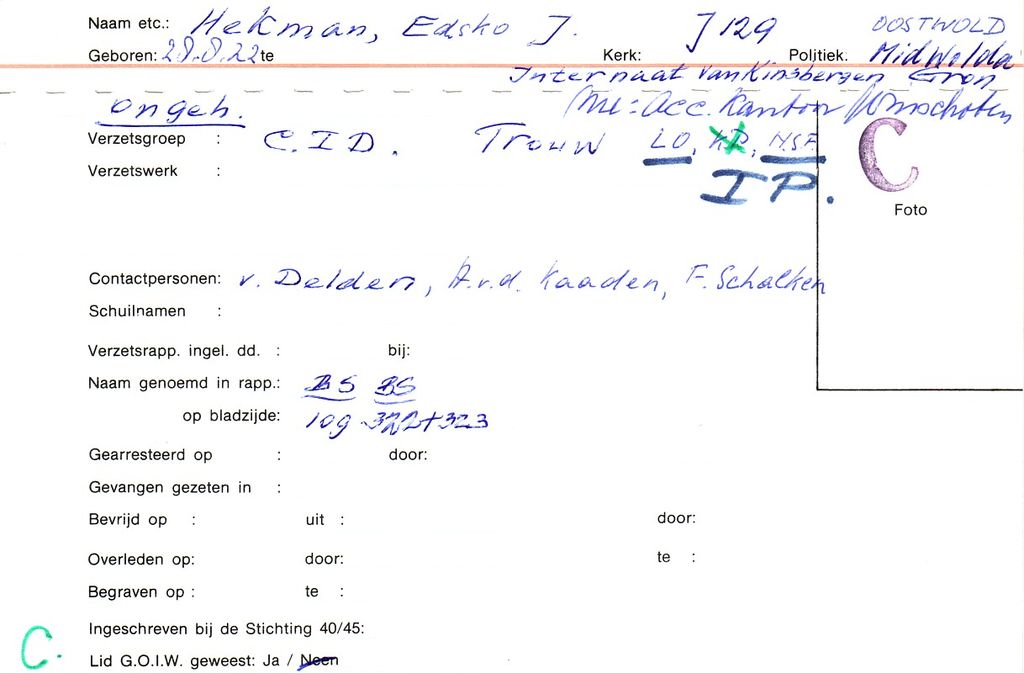 Naam etc.: Hekman, Edsko J. J 129 OOSTWOLD
Geboren: 28.8.22 te Kerk: Politiek: MidWolda
Internaat van Kinsbergen Gron
ongeh. Acc. Kanton Winschoten
Verzetsgroep : C.I.D. Trouw LO, KP, N.S.F.
Verzetswerk : I P.
C
Foto
Contactpersonen: v. Delden, A.v.d. Kaaden, F. Schalken
Schuilnamen :
Verzetsrapp. ingel. dd. : bij:
Naam genoemd in rapp.: BS BS
op bladzijde: 109 322+323
Gearresteerd op : door:
Gevangen gezeten in :
Bevrijd op : uit : door:
Overleden op: door: te :
Begraven op : te :
Ingeschreven bij de Stichting 40/45:
C. Lid G.O.I.W. geweest: Ja / Neen